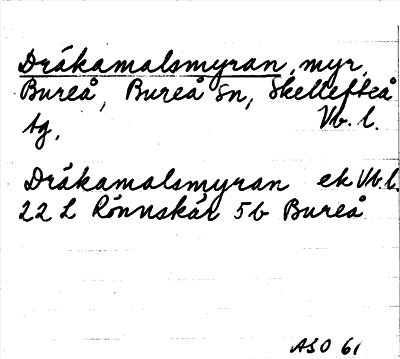 Dråkamalsmyran, myr,
Bureå, Bureå sn, Skellefteå
tg, Vb. l.
Dråkamalsmyran ek Vb. l.
22 L Rönnskär 5b Bureå
ASO 61